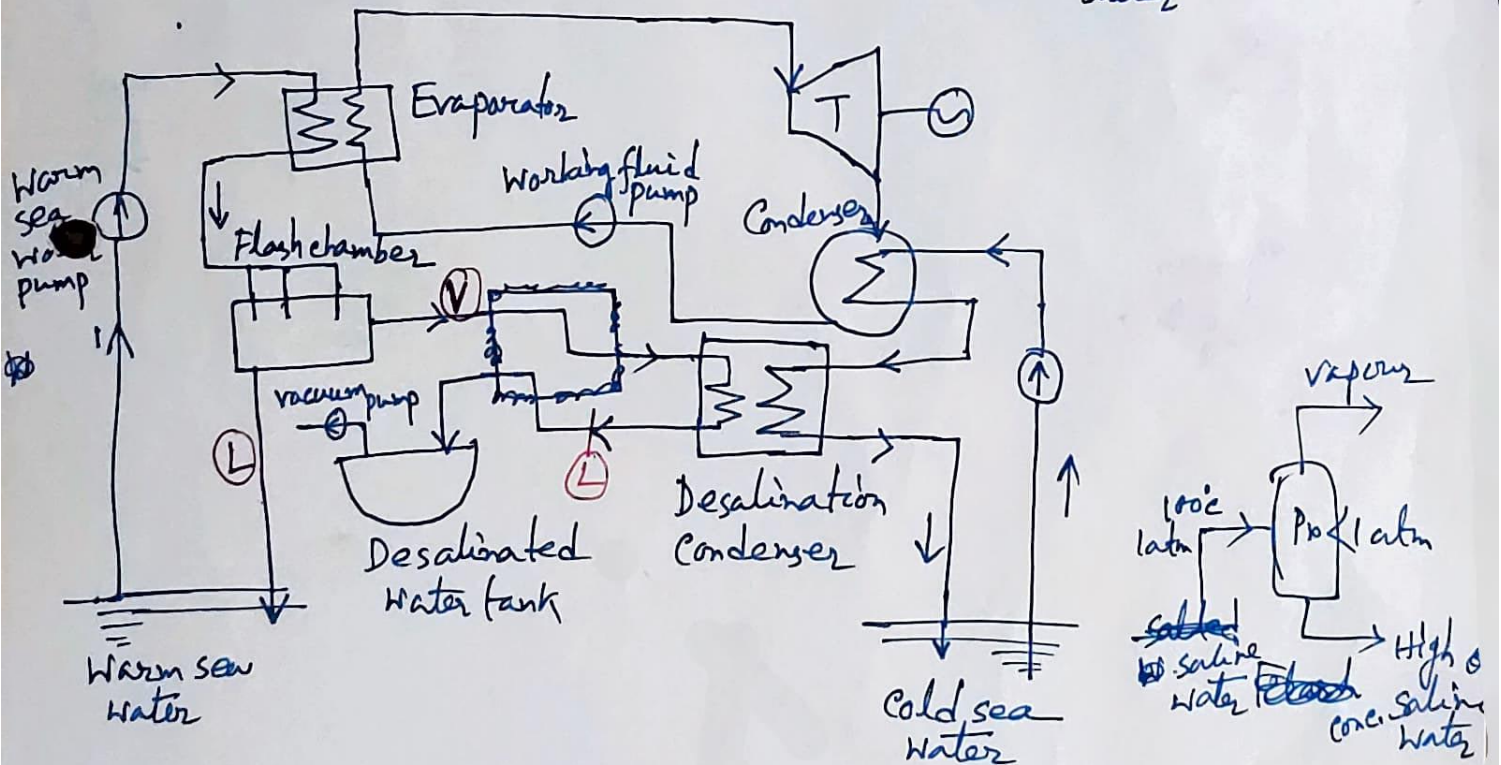 Evaparator
T
Warm
sea
pump
Working fluid
pump
Condenser
Flash chamber
V
vacuum pump
L
L
Desalinated
water tank
Desalination
Condenser
Warm sea
water
Cold sea
water
vapour
100°c
1atm
<1 atm
saline
water
High
conc. saline
water